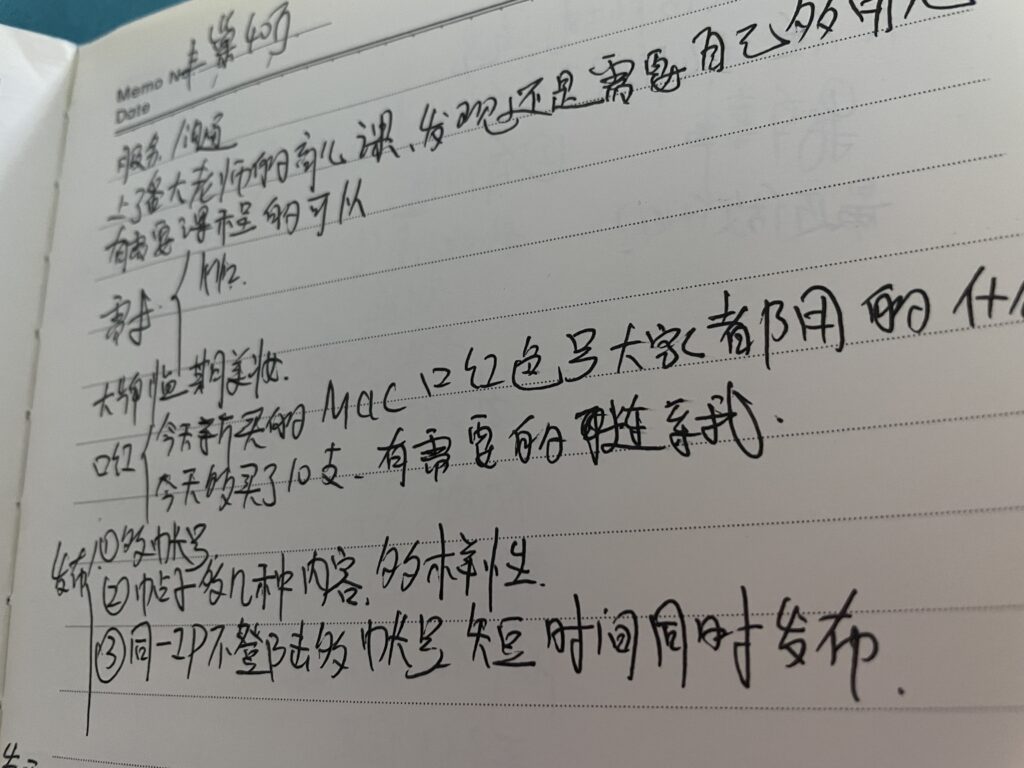 Memo No
Date
丰巢40万
服务/沟通
上了潘大老师的育儿课、发现还是需要自己多用
有需要课程的可以
大牌临期美妆.
口红 今天新买的Mac口红色号大家都用的什
今天多买了10支、有需要的联系我.
发布 ①多帐号.
②帖子多几种内容,多样性.
③同一IP不登陆多帐号 短时间同时发布.